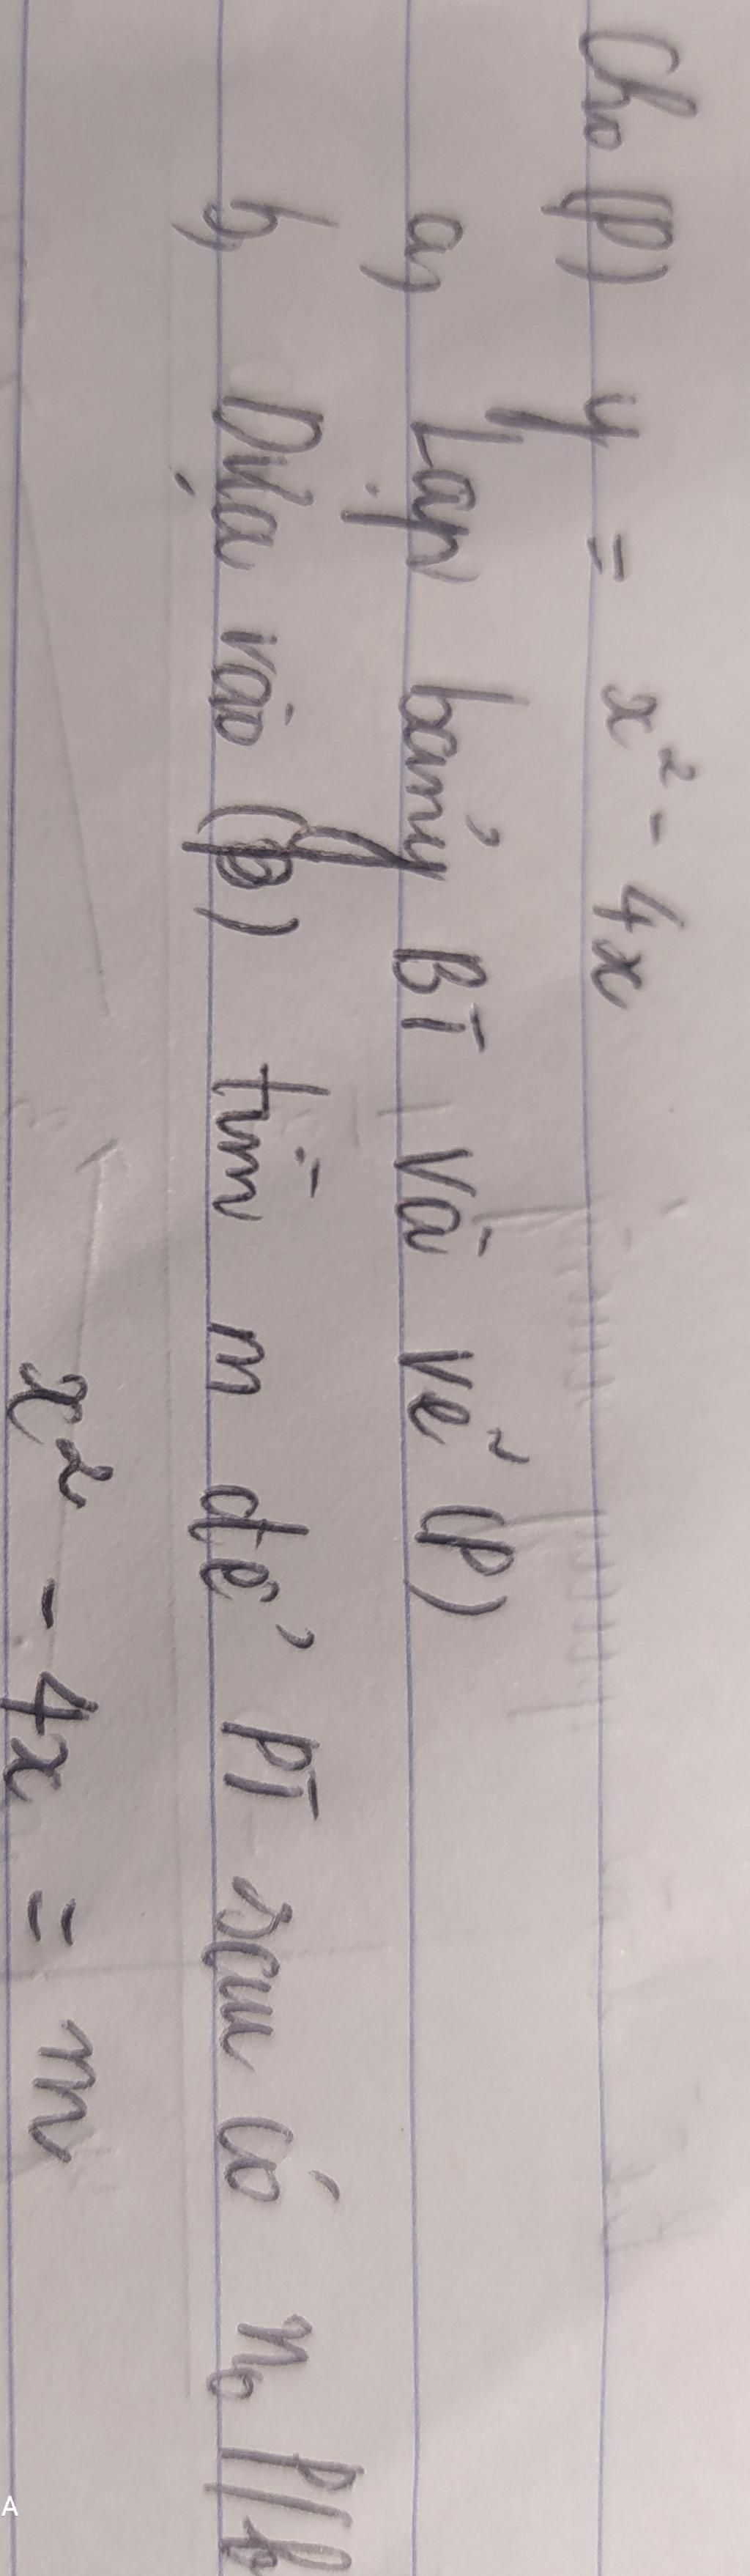 Cho (P) y = x² - 4x
a, Lập bảng BT và vẽ (P)
b, Dựa vào (P) tìm m để PT sau có no p/b
x² - 4x = m
A